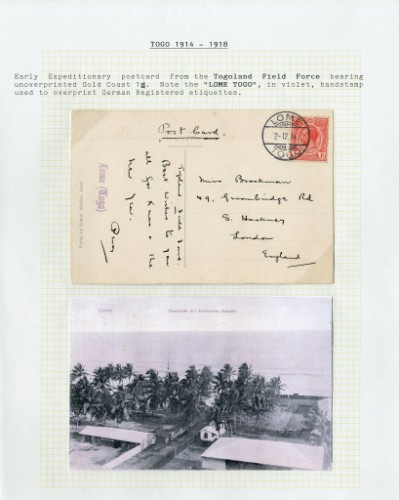 TOGO 1914 - 1918
Early Expeditionary postcard from the Togoland Field Force bearing
unoverprinted Gold Coast 1d. Note the "LOME TOGO", in violet, handstamp
used to overprint German Registered etiquettes.
Post Card.
LOME
2-12 14
TOGO
Lome (Togo)
Togoland Field Force.
Best wishes to you
all for Xmas & the
New Year.
Miss Brookman
49, Groombridge Rd
S. Hackney
London
England